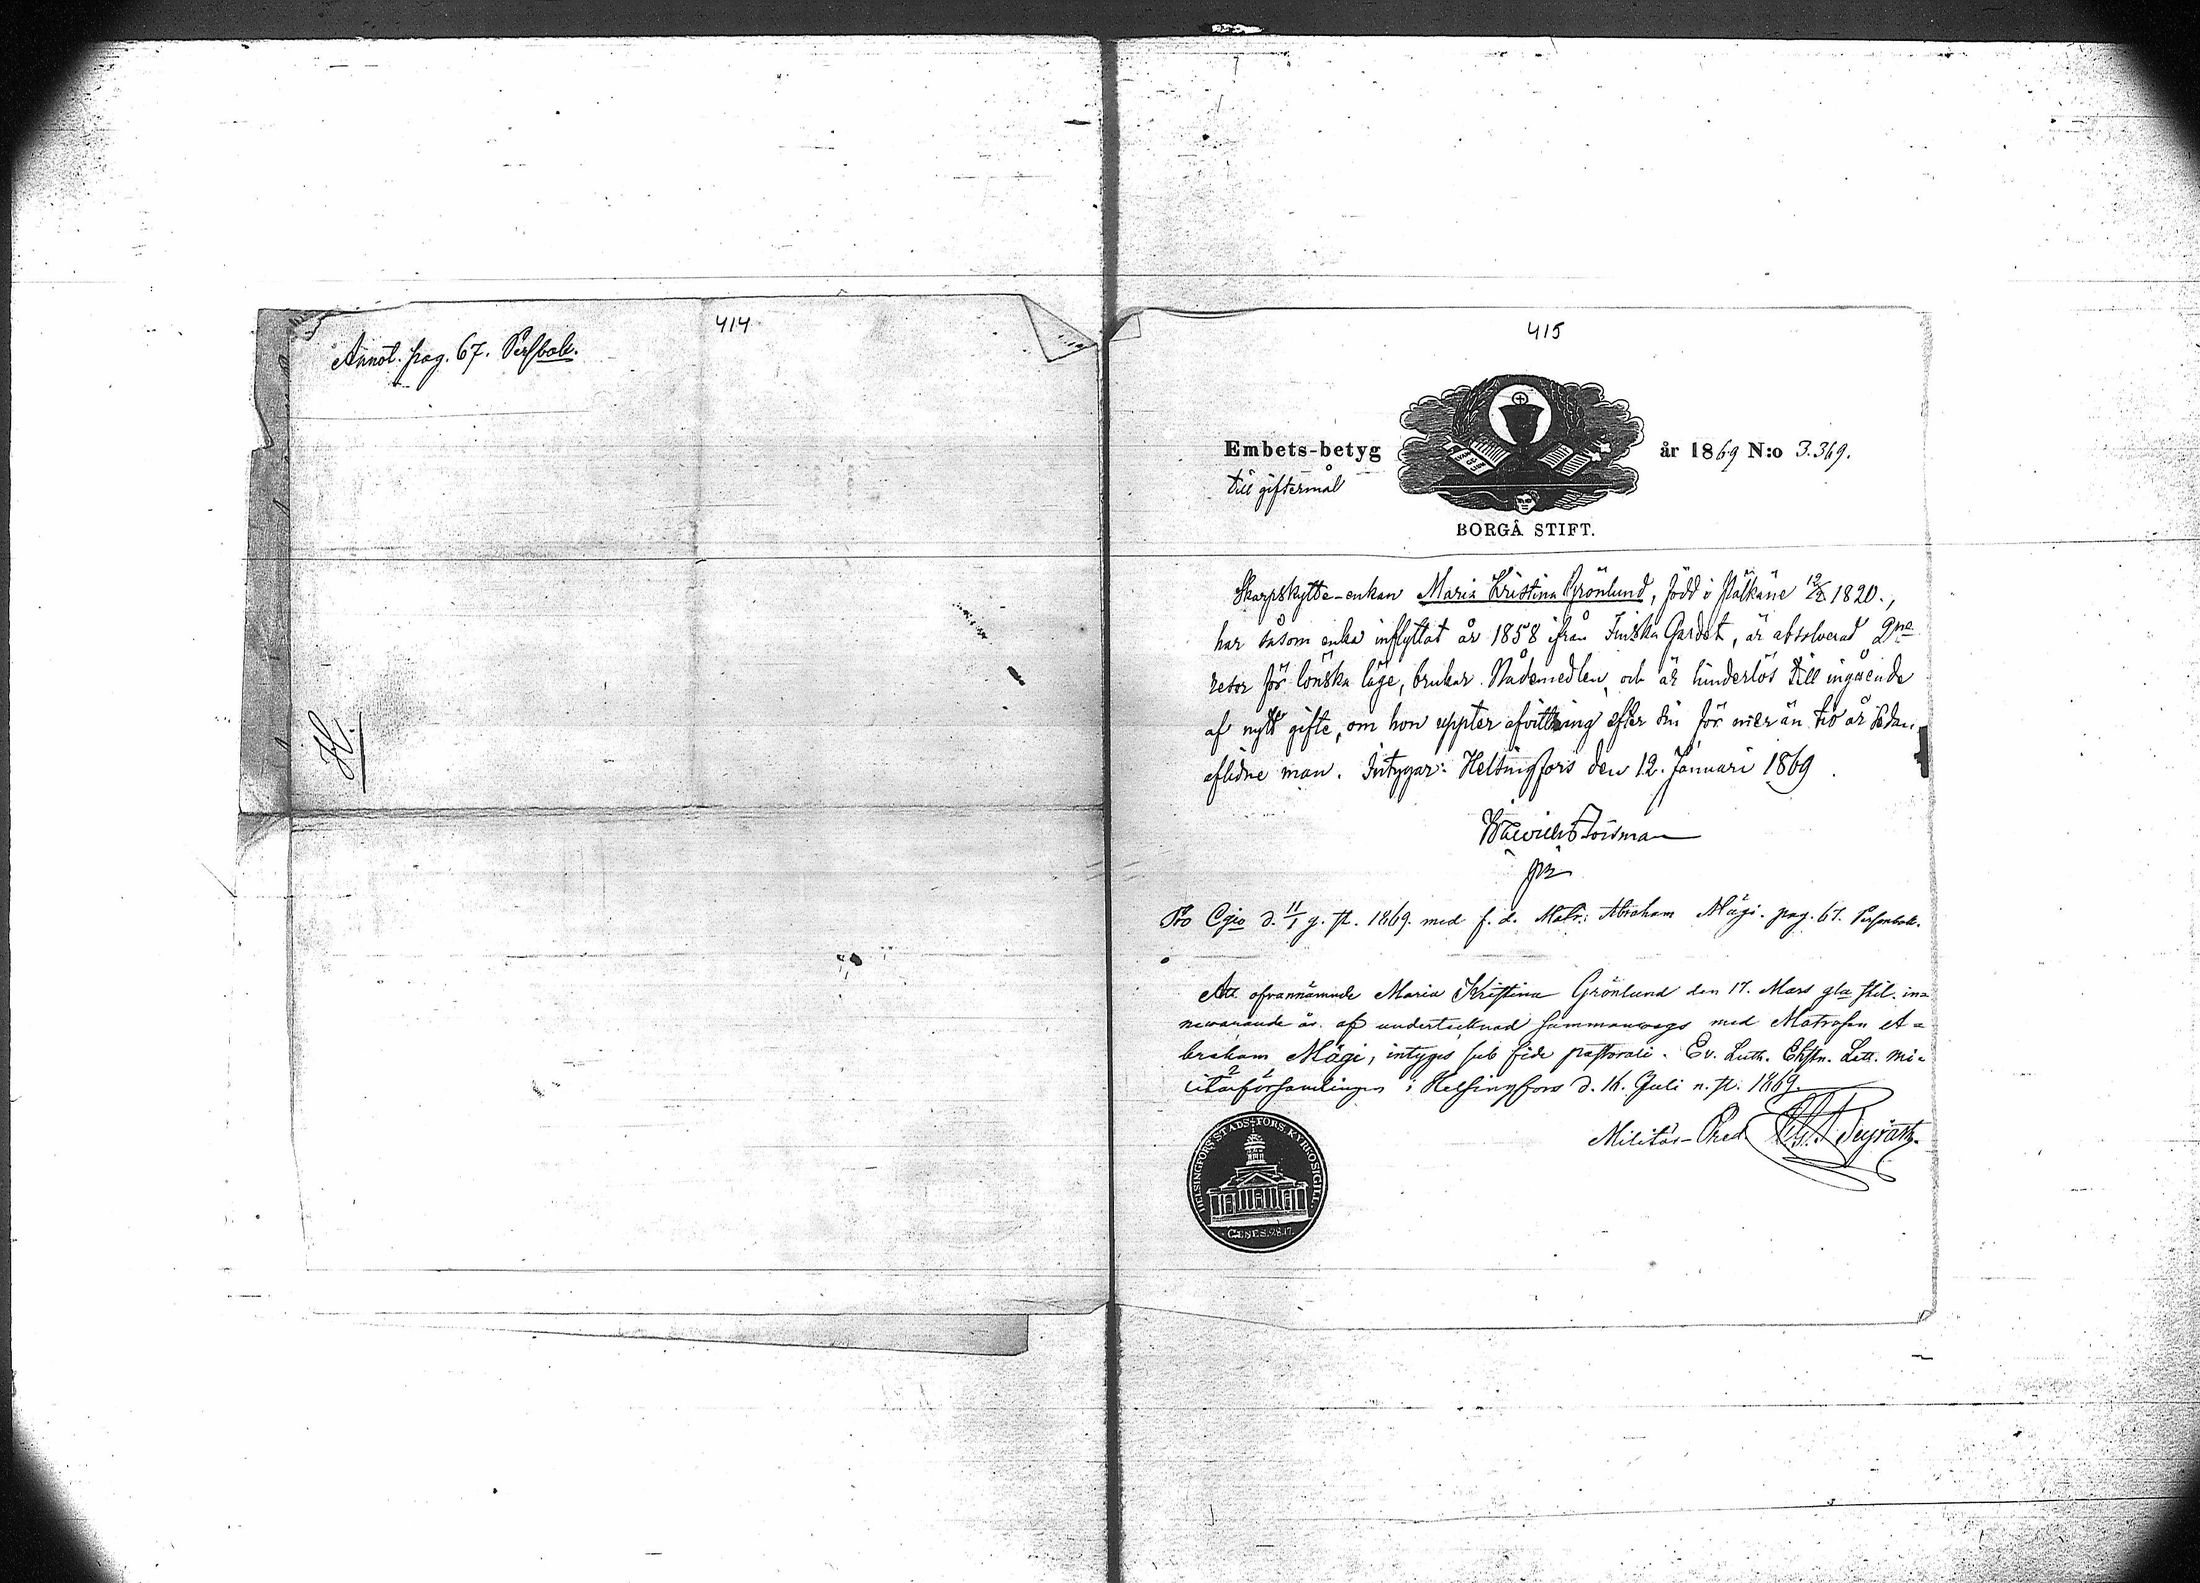 414
Annot. pag. 67. Persbok.
H.
415
Embets-betyg år 1869 N:o 3.369.
till giftermål
BORGÅ STIFT.
Skarpskytte-enkan Maria Kristina Grönlund, född i Pälkäne 1820.,
har såsom enka inflyttat år 1858 ifrån Finska Gardet, är absolverad 2ne
resor för lönska läge, brukar Nådemedlen, och är hinderlös till ingående
af nytt gifte, om hon uppter afvittring efter sin för mer än tio år sedan
aflidne man. Intygar: Helsingfors den 12. Januari 1869.
Forsman
Pro Cgio d. 11/1 g. st. 1869. med f. d. Matr: Abraham Mägi. pag. 67. Personbok.
Att ofvannämnde Maria Kristina Grönlund den 17. Mars gla stil. in=
nevarande år af undertecknad sammanvigs med Matrosen A=
braham Mägi, intygas sub fide pastorali. Ev. Luth. Ehstn. Lett. Mi=
litärförsamlingen i Helsingfors d. 16. Juli n. st. 1869.
Militär-Pred.
HELSINGFORS STADS FÖRS. KYRKOSIGILL.